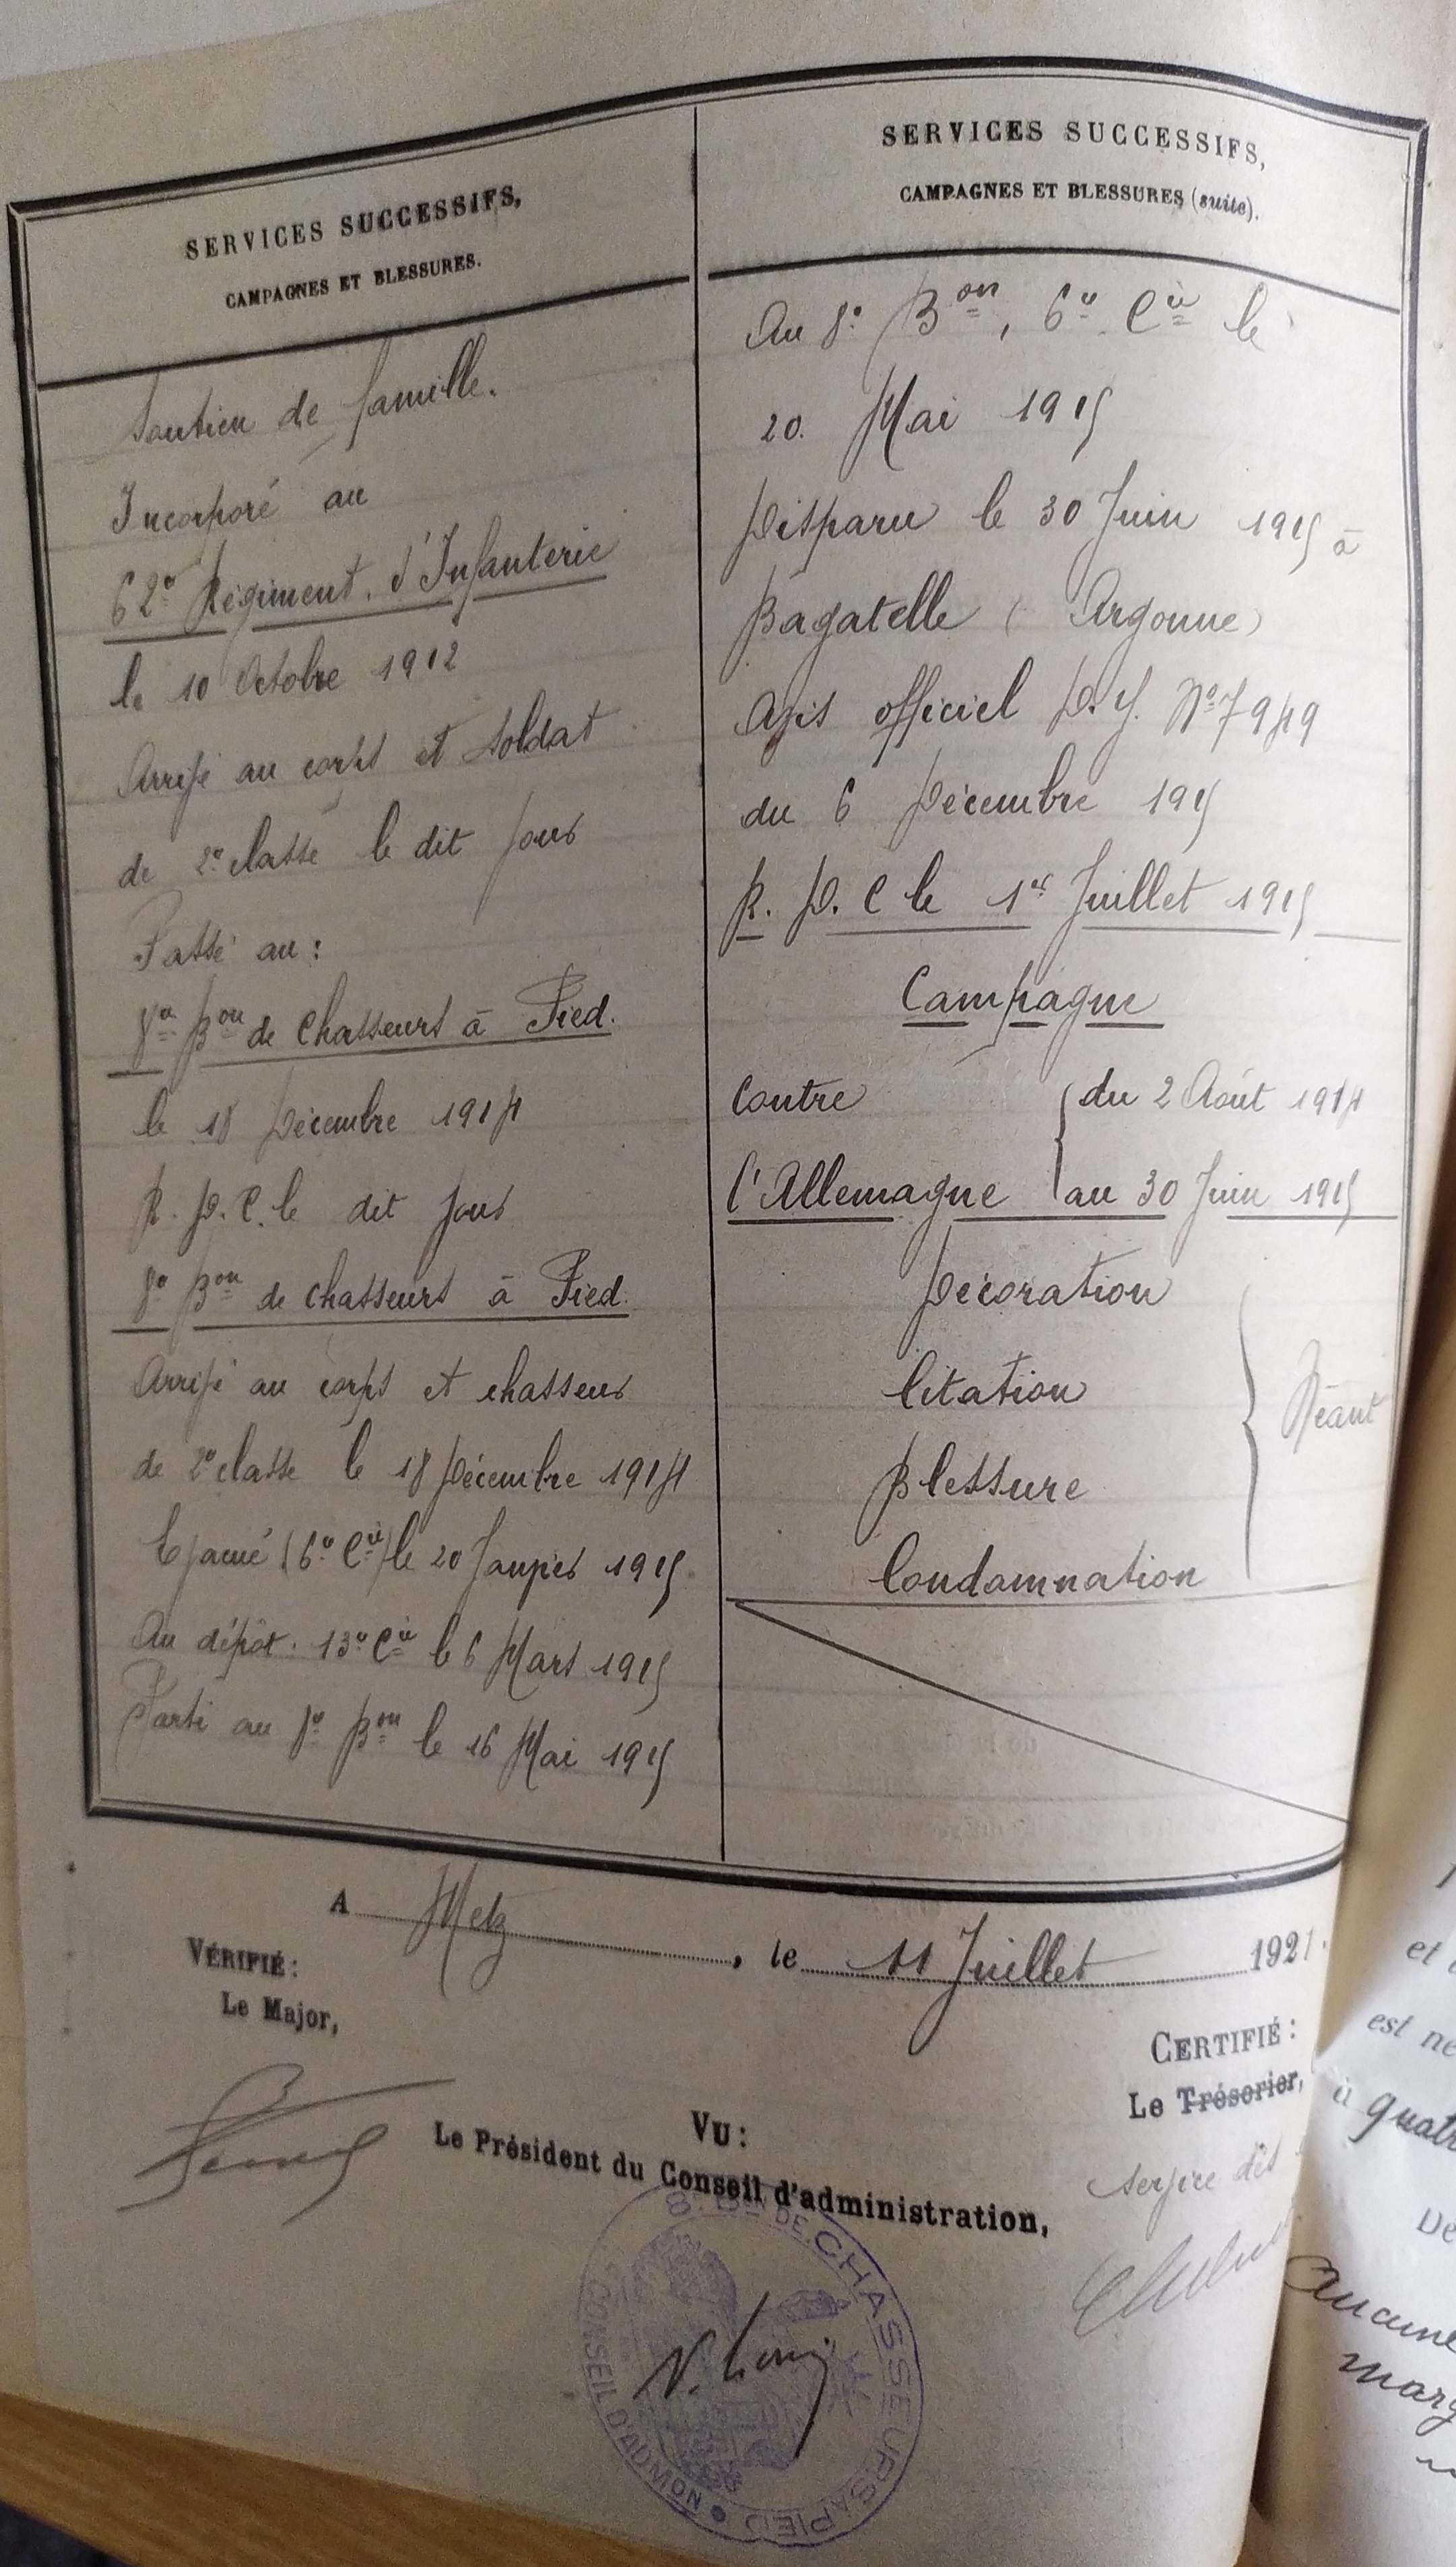 SERVICES SUCCESSIFS,
CAMPAGNES ET BLESSURES.
Soutien de famille.
Incorporé au
62e Régiment d'Infanterie
le 10 Octobre 1912
Arrivé au corps et soldat
de 2e classe le dit jour
Passé au :
8e Bon de Chasseurs à Pied.
le 18 Décembre 1914
R. D. C. le dit jour
8e Bon de chasseurs à Pied.
Arrivé au corps et chasseur
de 2e classe le 18 Décembre 1914
Evacué (6e Cie) le 20 Janvier 1915
Au dépôt. 13e Cie le 6 Mars 1915
Parti au 8e Bon le 16 Mai 1915
SERVICES SUCCESSIFS,
CAMPAGNES ET BLESSURES (suite).
Au 8e Bon, 6e Cie le
20. Mai 1915
Disparu le 30 Juin 1915 à
Bagatelle (Argonne)
Avis officiel D.V. No 7949
du 6 Décembre 1915
R. D. C le 1er Juillet 1915
Campagne
Contre { du 2 Août 1914
l'Allemagne au 30 Juin 1915
Décoration
Citation
Blessure
Condamnation
Néant
A Metz, le 11 Juillet 1921.
VÉRIFIÉ :
Le Major,
CERTIFIÉ :
Le Trésorier,
service des
VU :
Le Président du Conseil d'administration,
8e Bon DE CHASSEURS A PIED
CONSEIL D'ADMON
et
est né
à quatr
Aucune